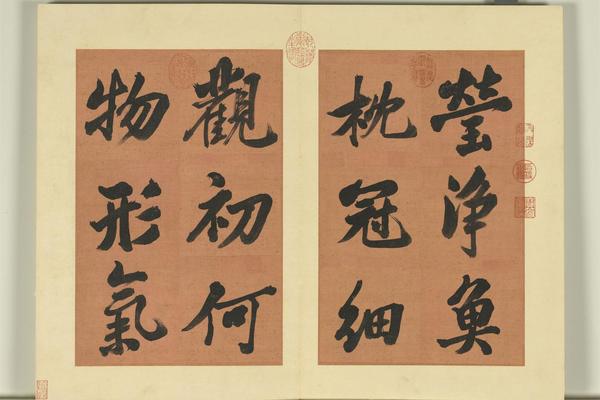 瑩淨魚
枕冠細
觀初何
物形氣